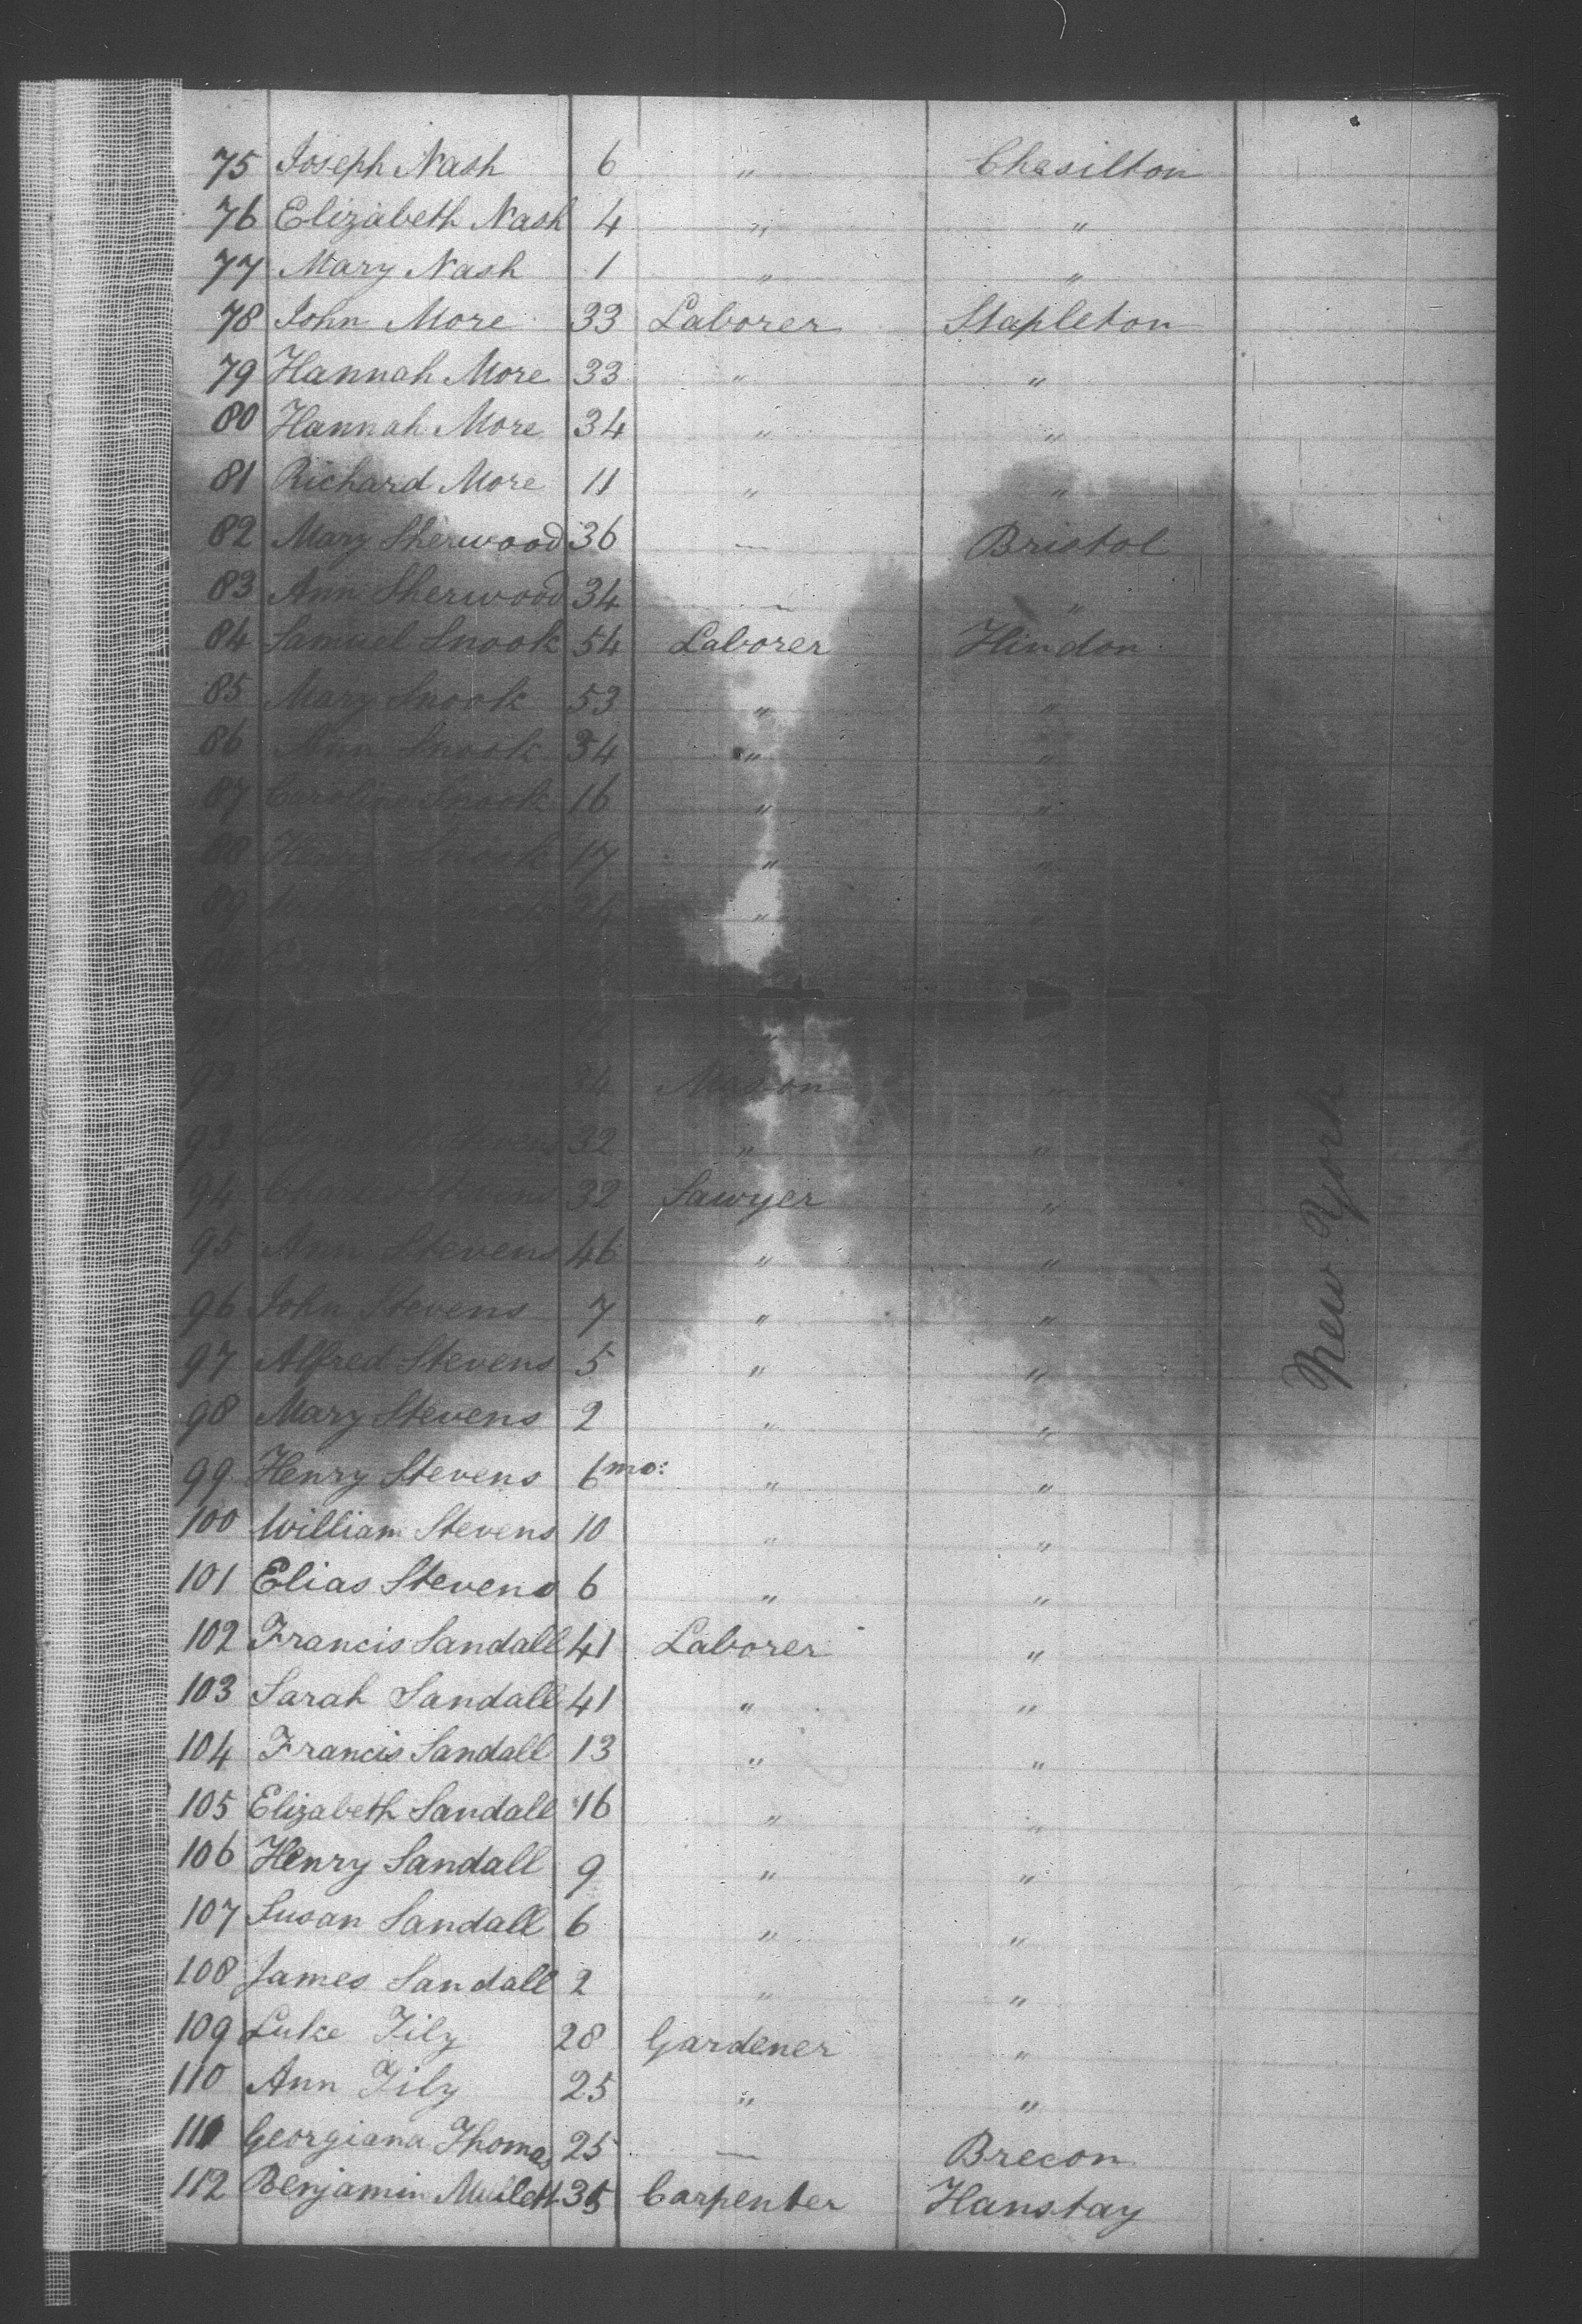 75 Joseph Nash 6 " Chasilton
76 Elizabeth Nash 4 " "
77 Mary Nash 1 " "
78 John More 33 Laborer Stapleton
79 Hannah More 33 " "
80 Hannah More 34 " "
81 Richard More 11 " "
82 Mary Sherwood 36 — Bristol
83 Ann Sherwood 34 — "
84 Samuel Snook 54 Laborer Hindon
85 Mary Snook 53 " "
86 Ann Snook 34 " "
87 Caroline Snook 16 " "
88 Henry Snook 17 " "
89 " "
92 34 Mason "
93 Stevens 32 " "
94 Stevens 32 Sawyer "
95 Ann Stevens 46 " "
96 John Stevens 7 " "
97 Alfred Stevens 5 " "
98 Mary Stevens 2 " "
99 Henry Stevens 6 mo: " "
100 William Stevens 10 " "
101 Elias Stevens 6 " "
102 Francis Sandall 41 Laborer "
103 Sarah Sandall 41 " "
104 Francis Sandall 13 " "
105 Elizabeth Sandall 16 " "
106 Henry Sandall 9 " "
107 Susan Sandall 6 " "
108 James Sandall 2 " "
109 Luke Tily 28 Gardener "
110 Ann Tily 25 " "
111 Georgiana Thomas 25 — Brecon
112 Benjamin 35 Carpenter Hanstay
New York